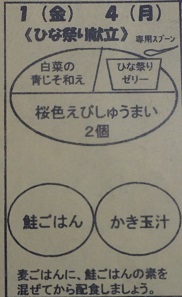 1（金） 4（月）
《ひな祭り献立》 専用スプーン
白菜の
青じそ和え
ひな祭り
ゼリー
桜色えびしゅうまい
2個
鮭ごはん
かき玉汁
麦ごはんに、鮭ごはんの素を
混ぜてから配食しましょう。